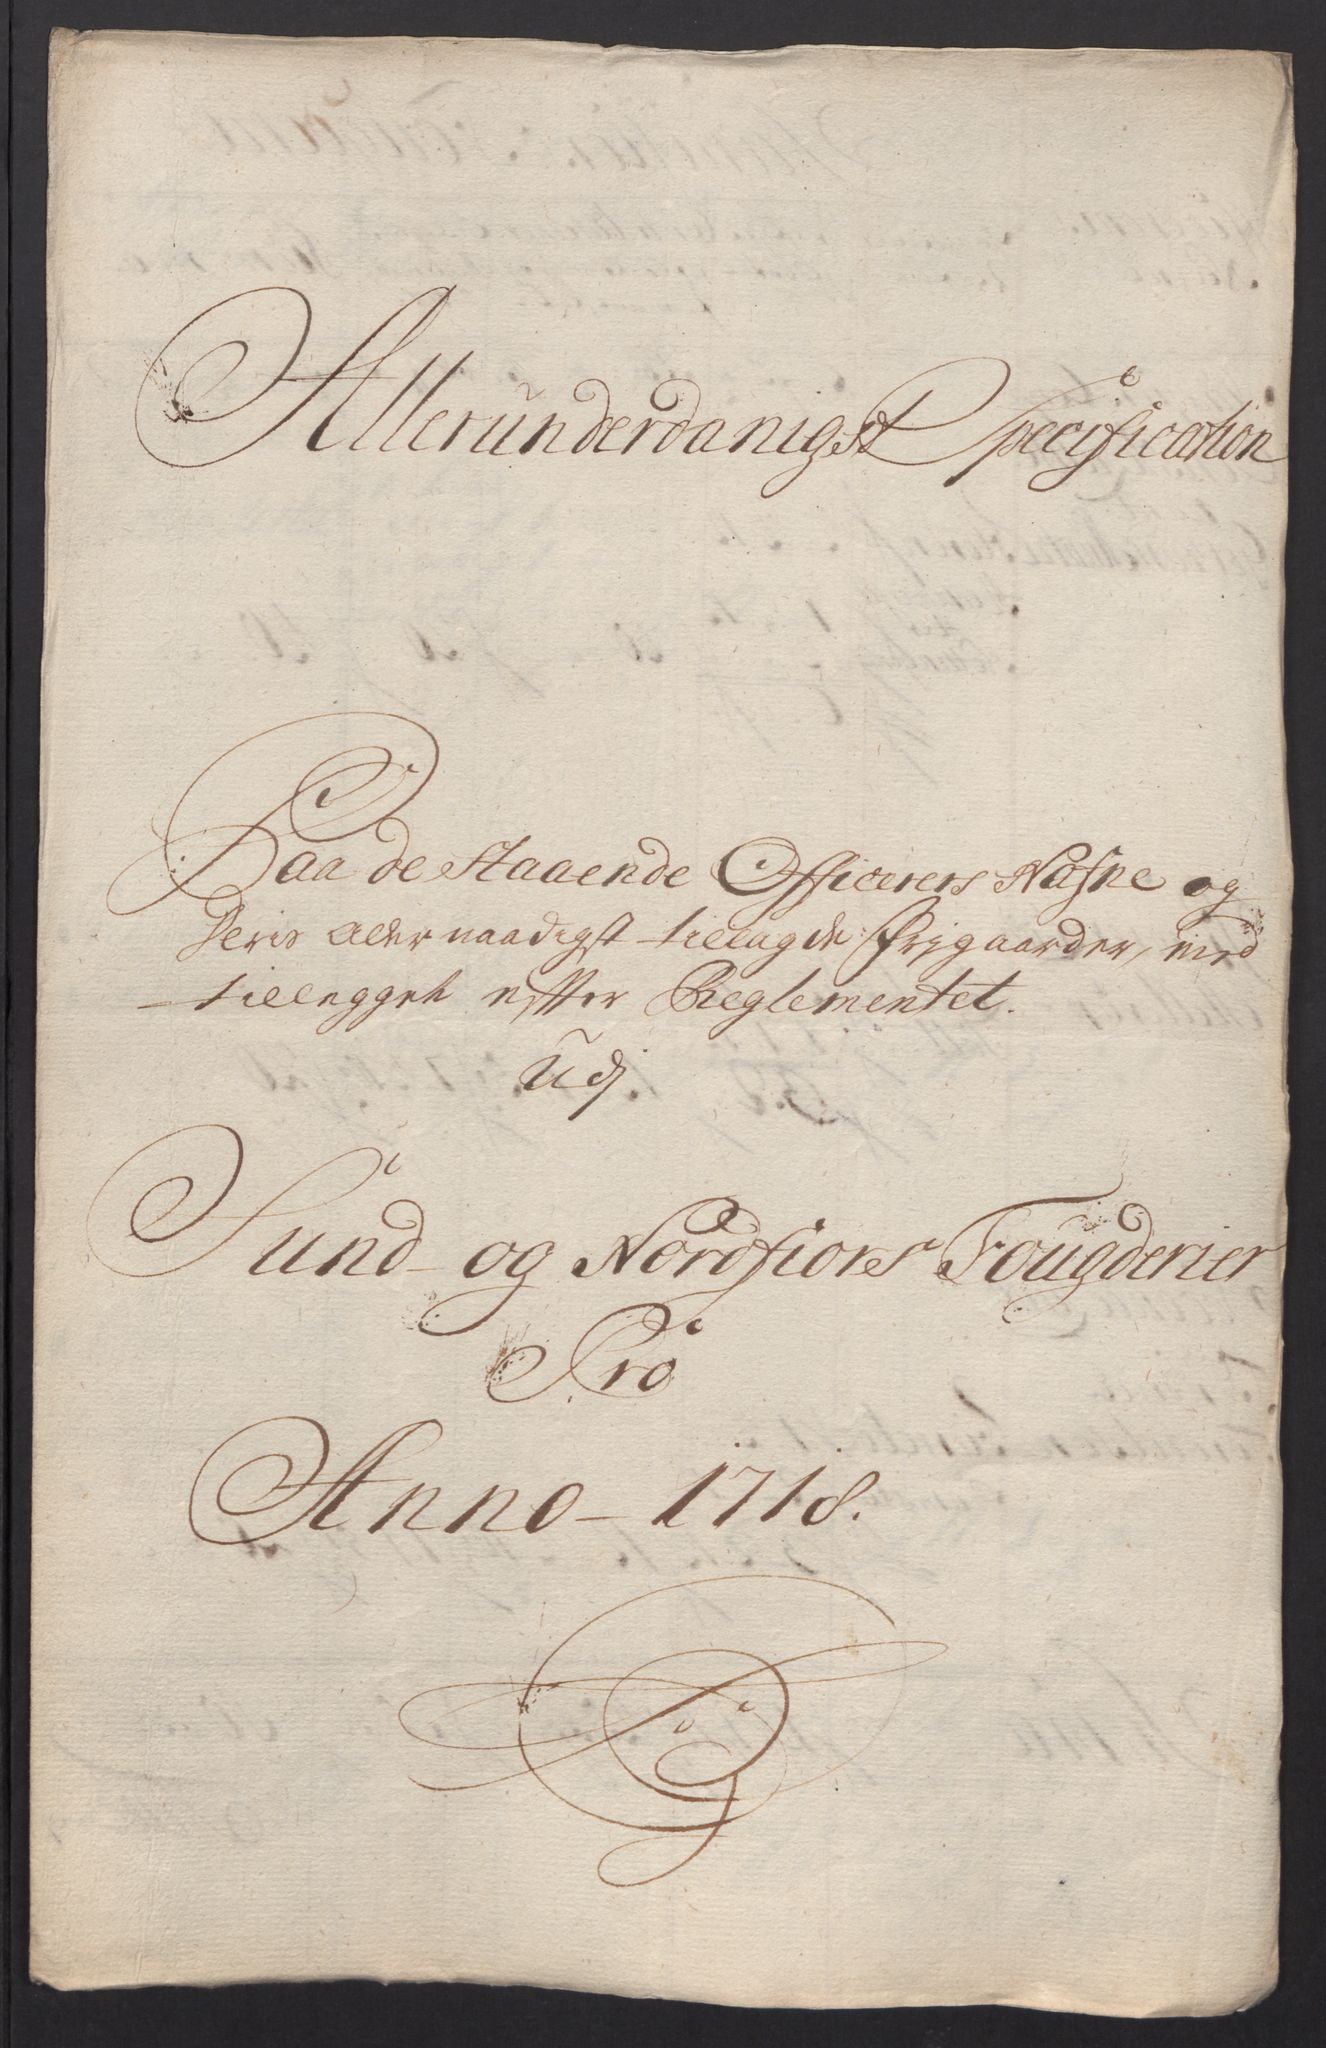 Allerunderdanigst Specification
Paa de staaende Officerers Nafne og
Deris allernaadigst tillagde Frjgaarder, med
tillegget effter Reglementet.
Udj
Sund- og Nordfiors Fougderier
Pro
Anno- 1718.